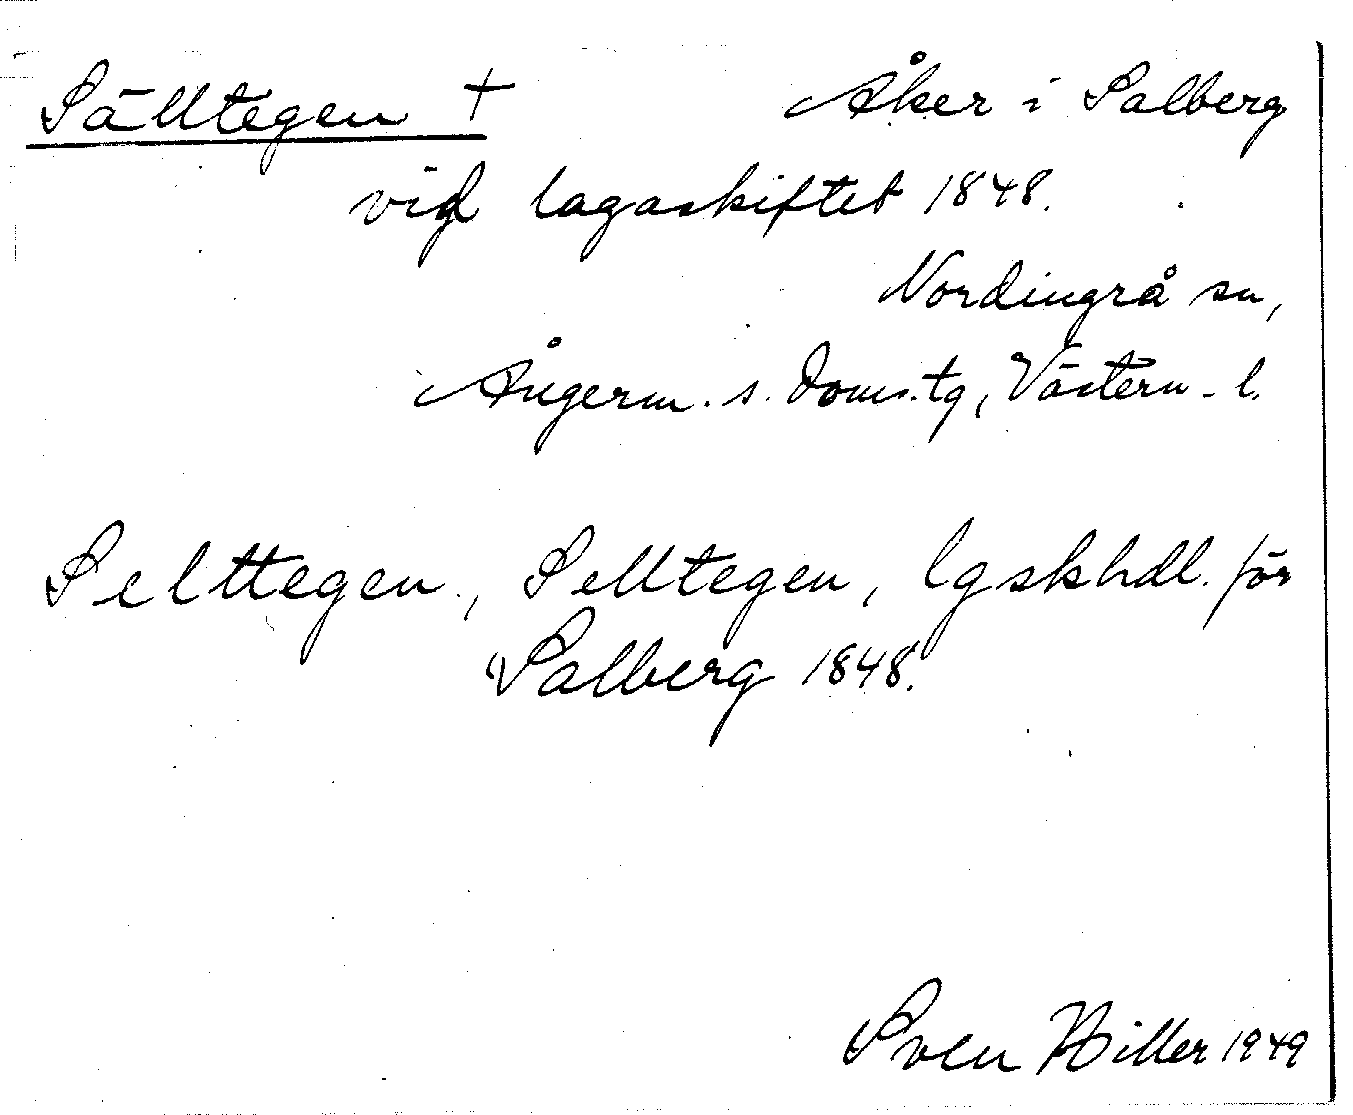 Sälltegen † Åker i Salberg
vid lagaskiftet 1848.
Nordingrå sn,
Ångerm. s. doms.tg, Västern. l.
Selttegen,Selltegen, lgskhdl. för
Salberg 1848.
Sven Hiller 1949